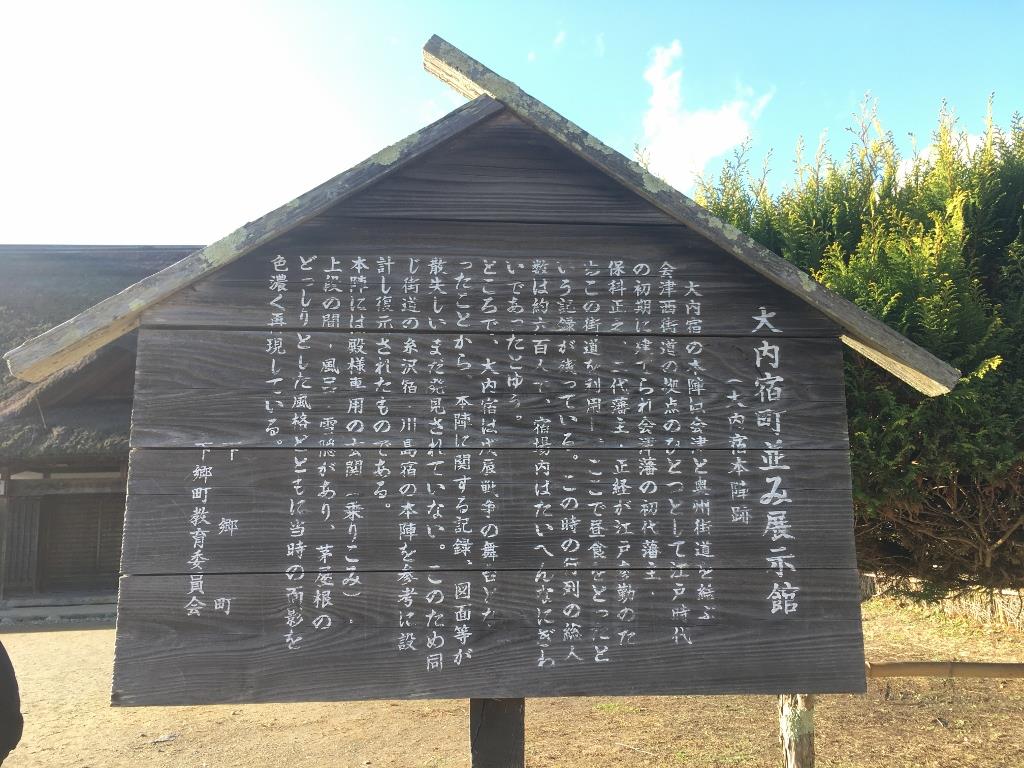 大内宿町並み展示館
（大内宿本陣跡）
大内宿の本陣は会津と奥州街道を結ぶ
会津西街道の拠点のひとつとして江戸時代
の初期に建てられ会津藩の初代藩主・
保科正之、二代藩主・正経が江戸参勤のた
めこの街道を利用し、ここで昼食をとったと
いう記録が残っている。この時の行列の総人
数は約六百人で、宿場内はたいへんなにぎわ
いであったとゆう。
ところで、大内宿は戊辰戦争の舞台とな
ったことから、本陣に関する記録、図面等が
散失しいまだ発見されていない。このため同
じ街道の糸沢宿・川島宿の本陣を参考に設
計し復示されたものである。
本陣には殿様専用の玄関（乗りこみ）・
上段の間・風呂・雪隠があり、茅屋根の
どっしりとした風格とともに当時の面影を
色濃く再現している。
下郷町
下郷町教育委員会